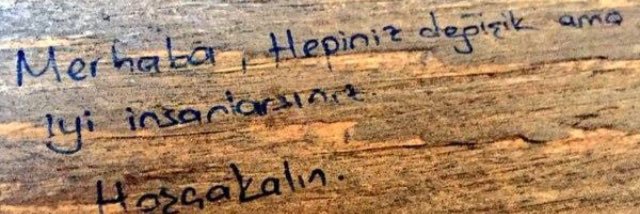 Merhaba, Hepiniz değişik ama
iyi insanlarsınız.
Hoşçakalın.